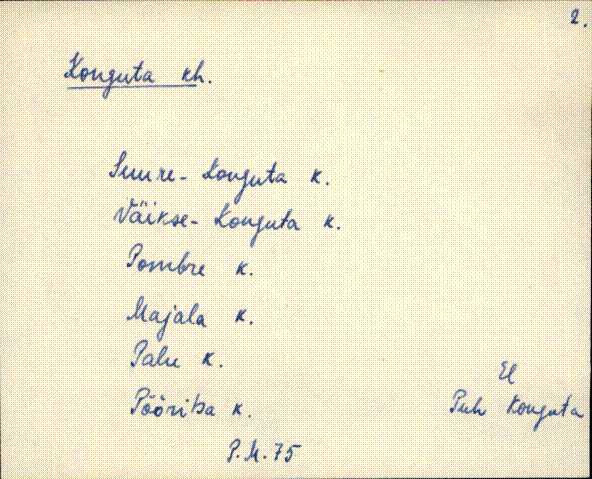 2.
Konguta kh.
Suure-Konguta k.
Väikse-Konguta k.
Pombre k.
Majala k.
Palu k.
Pööritsa k.
El
Puh Konguta
P.M. 75